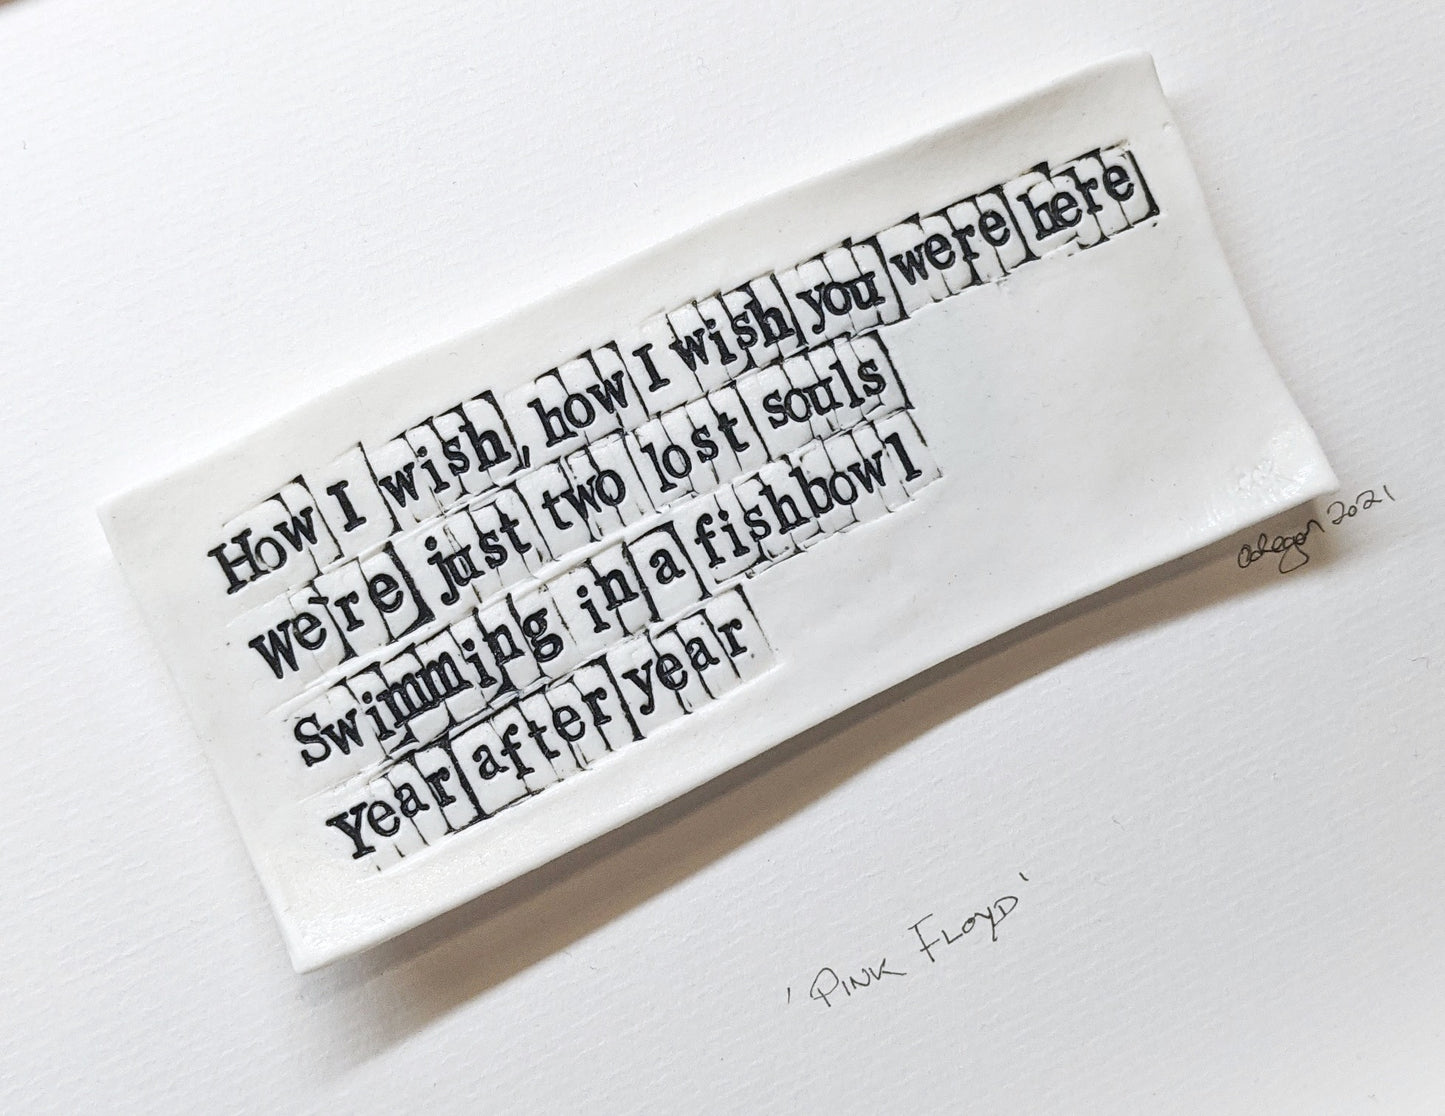 How I wish, how I wish you were here
We`re just two lost souls
Swimming in a fishbowl
Year after year
2021
'PINK FLOYD'